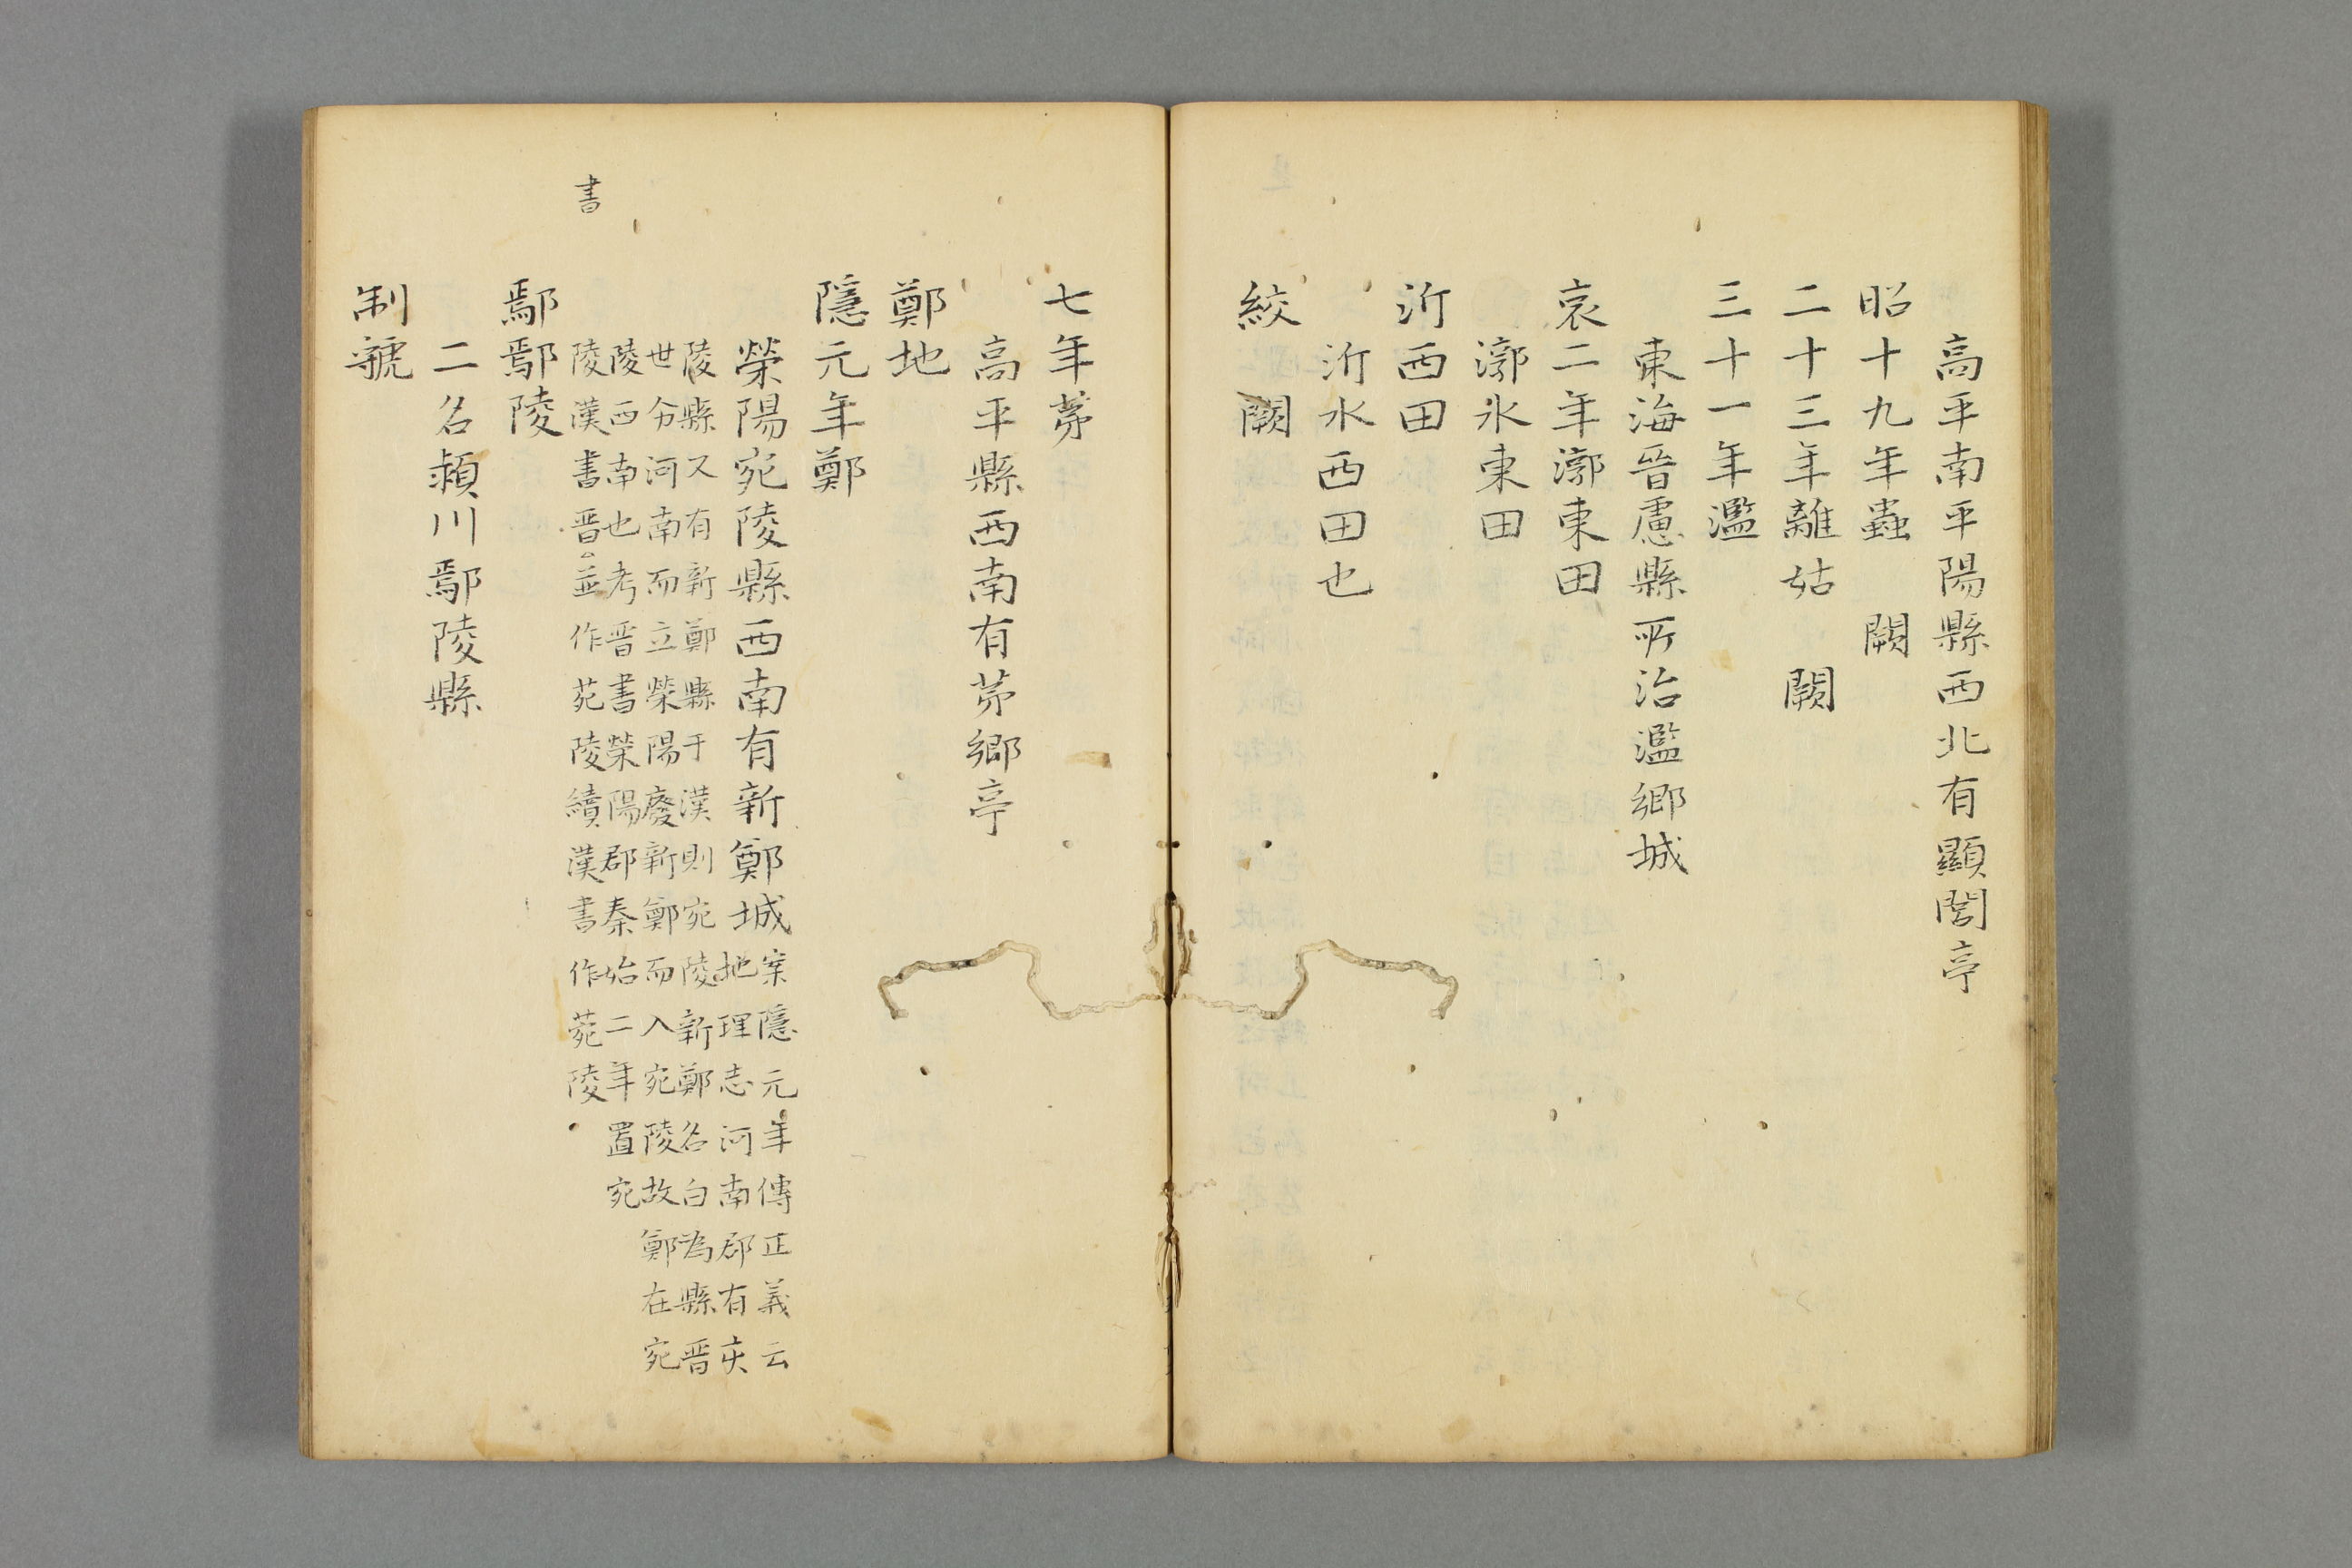 高平南平陽縣西北有顯閭亭
昭十九年蟲　闕
二十三年離姑　闕
三十一年濫
東海昌慮縣所治濫鄉城
哀二年漷東田
漷水東田
沂西田
沂水西田也
絞　闕
七年茅
高平縣西南有茅鄉亭
鄭地
隱元年鄭
滎陽宛陵縣西南有新鄭城
案隱元年傳正義云
地理志河南郡有
陵縣又有新鄭縣于漢則宛陵新鄭各自為縣晋
世分河南而立滎陽廢新鄭而入宛陵故鄭在宛
陵西南也考晋書滎陽郡泰始二年置宛
陵漢書晋並作苑陵續漢書作菀陵
書
鄢鄢陵
二名潁川鄢陵縣
制虢